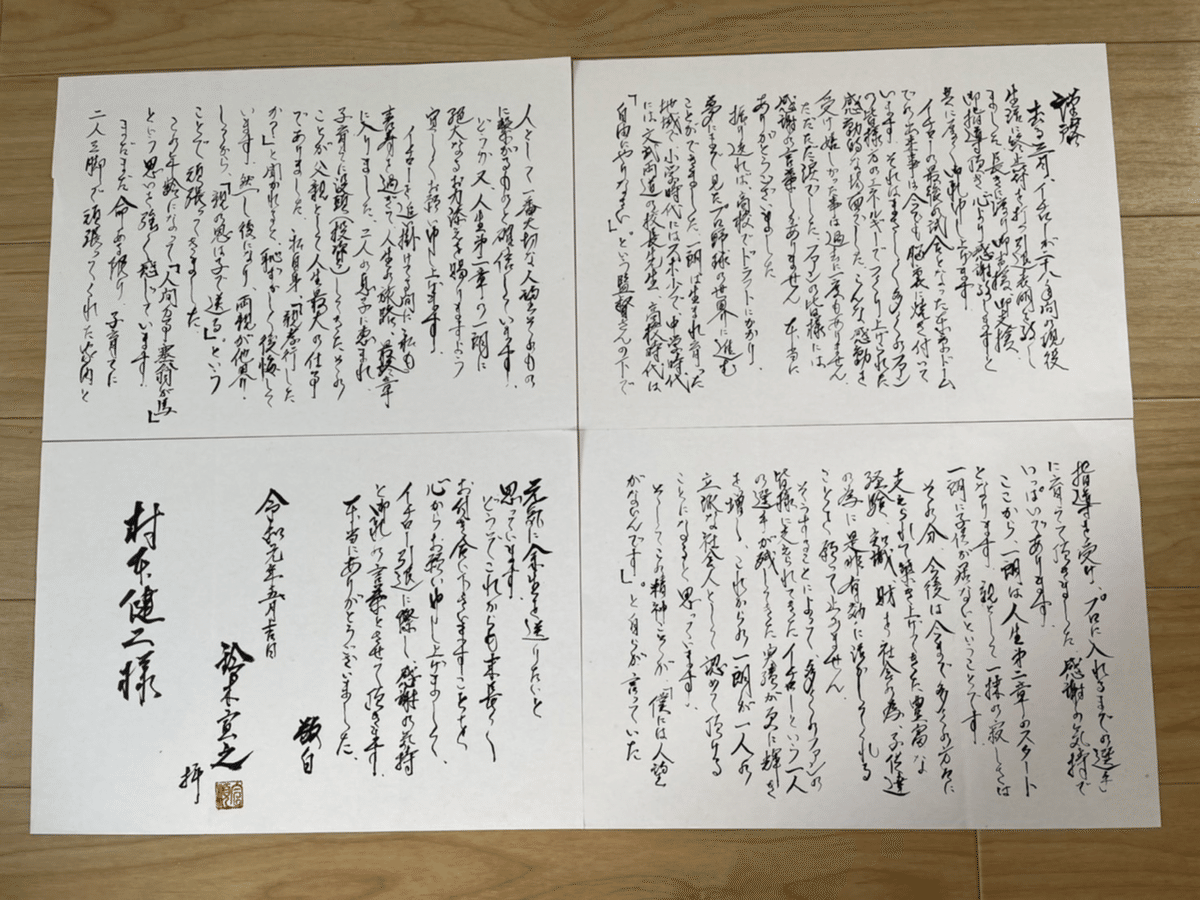 謹啓
去る三月、イチローが二十八年間の現役
生活に終止符を打つ引退表明を致し
ました。長きに渡り御支援、御支援
御指導頂き心より感謝致しますと
共に厚く御礼申し上げます。
イチローの最後の試合となった東京ドーム
での出来事は今でも脳裏に焼き付いて
います。それはまさしく多くのファン
の皆様方のエネルギーでつくり上げられた
感動的な場面でした。こんな感動を
受け嬉しかった事は過去に一度もありません。
ただただ涙でした。ファンの皆様には
感謝の言葉しかありません。本当に
ありがとうございました。
振り返れば、高校でドラフトにかかり
夢にまで見たプロ野球の世界に進む
ことができました。一朗は生まれ育った
地域で、小学時代にはスポ少で、中学時代
には文武両道の校長先生、高校時代は
「自由にやりなさい。」という監督さんの下で
指導を受け、プロに入れるまでの選手
に育てて頂きました。感謝の気持で
いっぱいであります。
ここから一朗は人生第二章のスタート
となります。親として一抹の寂しさは
一朗に子供が居ないということです。
その分、今後は今まで多くの方々に
支えられて築き上げてきた豊富な
経験、知識、財を社会の為、子供達
の為に是非有効に活かしてくれる
ことを願って止みません。
そうすることによって、多くのファンの
皆様に支えられてきたイチローという一人
の選手が残してきた実績が更に輝き
を増し、これからの一朗が一人の
立派な社会人として認めて頂ける
ことになると思っています。
そしてこの精神こそが、「僕には人望
がないんです」。と自らが言っていた
人として一番大切な人望そのもの
に繋がるものと確信しています。
どうか又、人生第二章の一朗に
絶大なるお力添えを賜りますよう
宜しくお願い申し上げます。
イチローを追掛けてる間に私も
喜寿を過ぎて人生の旅路、最終章
に入りました。二人の息子に恵まれ
子育てに没頭(投資)してきた。その
ことが父親として人生最大の仕事
でありました。私自身、「親孝行した
かっ」と聞かれると、恥ずかしく後悔して
います。然し後になり、両親が他界。
しながら、「親の恩は子で送る」。という
ことで頑張ってきました。
この年齢になって「人間万事塞翁が馬」
という思いを強く感じています。
まだまだ命ある限り、子育てに
二人三脚で頑張ってくれた家内と
元気に余生を送りたいと
思っています。
どうぞこれからも末長く
お付き合い下さいますことを
心からお願い申し上げまして、
イチロー引退に際し感謝の気持
と御礼の言葉とさせて頂きます。
本当にありがとうございました。
敬白
令和元年五月吉日
鈴木宣之
拝
村本健二様